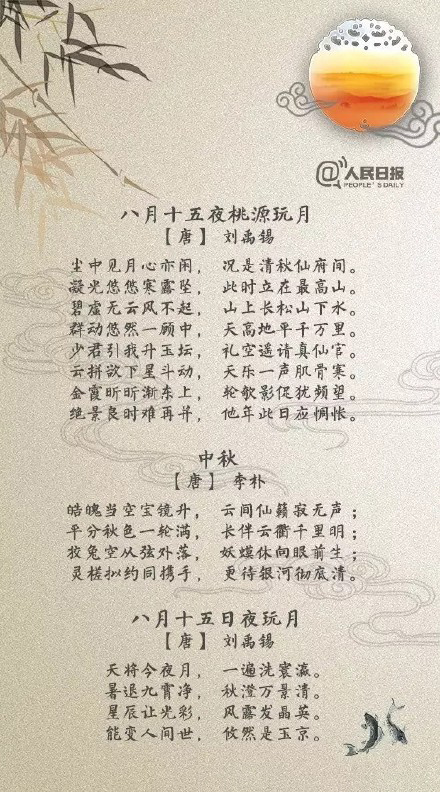 @人民日报
PEOPLE'S DAILY
八月十五夜桃源玩月
【唐】 刘禹锡
尘中见月心亦闲， 况是清秋仙府间。
凝光悠悠寒露坠， 此时立在最高山。
碧虚无云风不起， 山上长松山下水。
群动悠然一顾中， 天高地平千万里。
少君引我升玉坛， 礼空遥请真仙官。
云拼欲下星斗动， 天乐一声肌骨寒。
金霞昕昕渐东上， 轮欹影促犹频望。
绝景良时难再并， 他年此日应惆怅。
中秋
【唐】 李朴
皓魄当空宝镜升， 云间仙籁寂无声；
平分秋色一轮满， 长伴云衢千里明；
狡兔空从弦外落， 妖蟆休向眼前生；
灵槎拟约同携手， 更待银河彻底清。
八月十五日夜玩月
【唐】 刘禹锡
天将今夜月， 一遍洗寰瀛。
暑退九霄净， 秋澄万景清。
星辰让光彩， 风露发晶英。
能变人间世， 攸然是玉京。